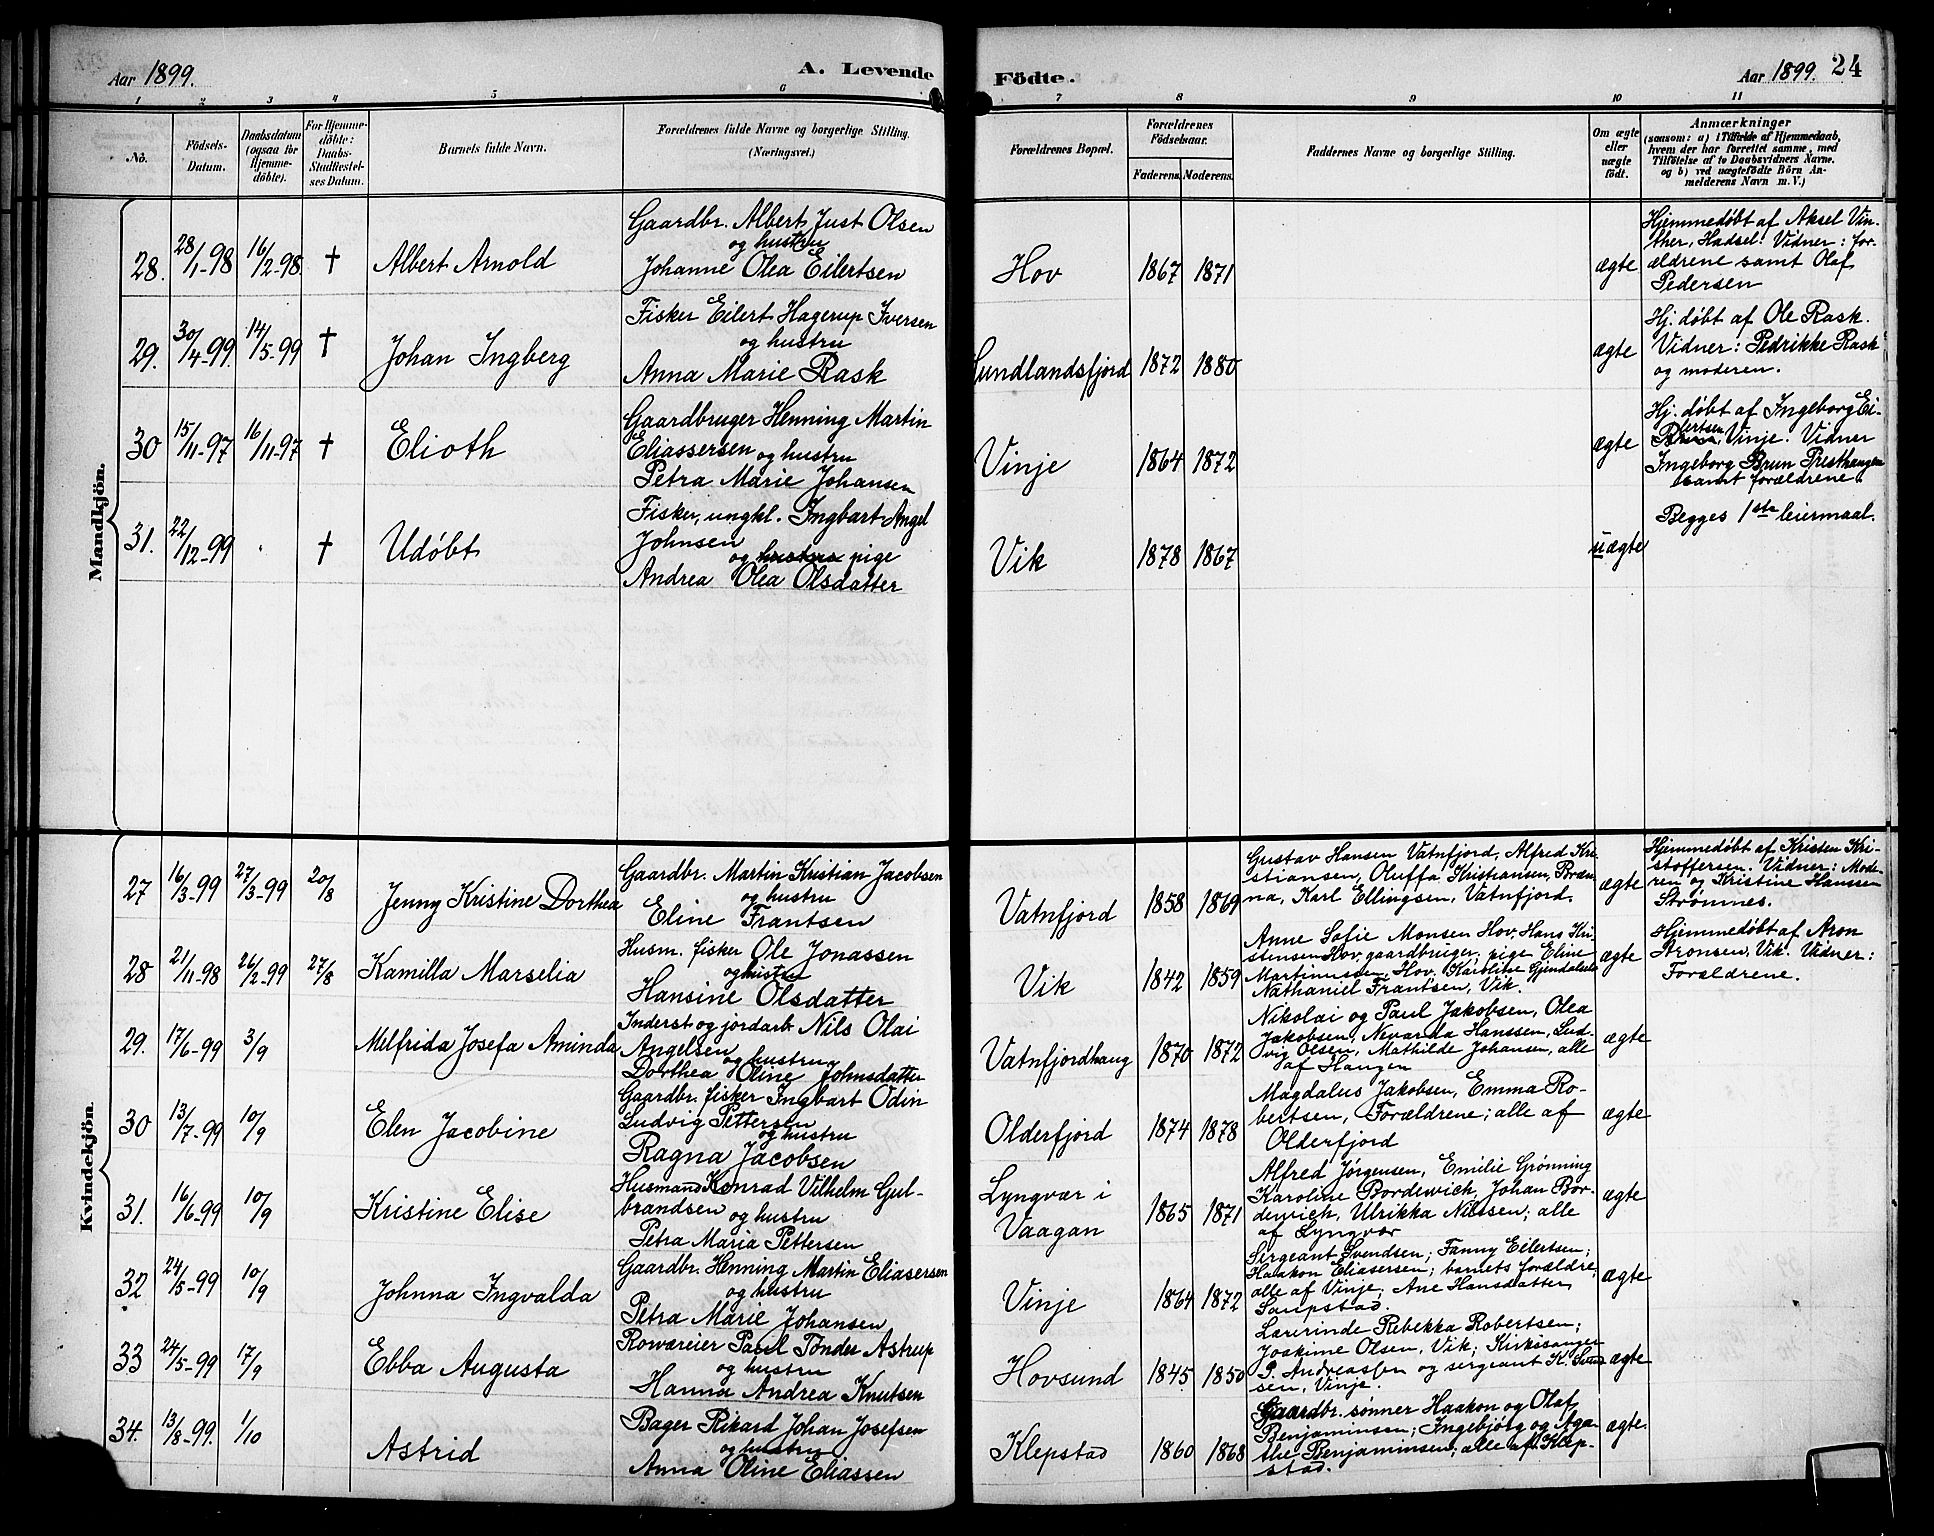 Aar 1899.
A. Levende
Födte.
Aar 1899. 24
1 2 3 4 5 6 7 8 9 10 11
No.
Födsels-
Datum.
Daabsdatum
(ogsaa for
Hjemme-
döbte).
For Hjemme-
döbte:
Daabs-
Stadfæstel-
ses Datum.
Barnets fulde Navn.
Forældrenes fulde Navne og borgerlige Stilling.
(Næringsvei.)
Forældrenes Bopæl.
Forældrenes
Födselsaar.
Faderens. Moderens.
Faddernes Navne og borgerlige Stilling.
Om ægte
eller
uægte
födt.
Anmærkninger
(saasom: a) i Tilfælde af Hjemmedaab,
hvem der har forrettet samme, med
Tilföielse af to Daabsvidners Navne.
og b) ved uægtefödte Börn An-
melderens Navn m. V.)
Mandkjön.
28. 28/1-98 16/2-98 † Albert Arnold
Gaardbr. Albert Just Olsen
og hustru
Johanne Olea Eilertsen
Hov 1867 1871 ægte
Hjemmedøbt af Aksel Vin-
ther, Hadsel. Vidner: for-
ældrene samt Olaf
Pedersen
29. 30/4-99 14/5-99 † Johan Ingberg
Fisker Eilert Hagerup Iversen
og hustru
Anna Marie Rask
Sundlandsfjord 1872 1880 ægte
Hj. døbt af Ole Rask.
Vidner: Pedrikke Rask
og moderen.
30 15/11-97 16/11-97 † Elioth
Gaardbruger Henning Martin
Eliassersen og hustru
Petra Marie Johansen
Vinje 1864 1872 ægte
Hj. døbt af Ingeborg Ei-
lertsen
Brun, Vinje. Vidner
Ingeborg Brun Presthaugen
samt forældrene.
31. 22/12-99 . † Udøbt
Fisker, ungkl. Ingbart Angel
Johnsen
og hustru pige
Andrea Olea Olsdatter
Vik 1878 1867 uægte
Begges 1ste leiermaal.
Kvindekjön.
27 16/3-99 27/3-99 20/8 Jenny Kristine Dorthea
Gaardbr. Martin Kristian Jacobsen
og hustru
Eline Frantsen
Vatnfjord 1858 1869
Gustav Hansen Vatnfjord, Alfred Kri-
stiansen, Oluffa Kristiansen, Bræn-
na, Karl Ellingsen, Vatnfjord.
ægte
Hjemmedøbt af Kristen Kri-
stoffersen. Vidner: Mode-
ren og Kristine Hanssen
Strømnes.
28 21/11-98 26/2-99 27/8 Kamilla Marselia
Husm. fisker Ole Jonassen
og hustru
Hansine Olsdatter
Vik 1842 1859
Anne Sofie Monsen Hov, Hans Kri-
stensen Hov, gaardbruger, pige Eline
Martinussen, Hov, Karoline Gjendalsen
Nathaniel Frantsen, Vik.
ægte
Hjemmedøbt af Aron
Aronsen, Vik. Vidner:
Forældrene.
29. 17/6-99 3/9 Melfrida Josefa Aminda
Inderst og jordarb. Nils Olai
Angelsen
og hustru
Dorthea Oline Johnsdatter
Vatnfjordhaug 1870 1872
Nikolai og Paul Jakobsen, Olea
Jakobsen, Nevarda Hanssen, Lud-
vig Olsen, Mathilde Johansen, alle
af Haugen
ægte
30 13/7-99 10/9 Elen Jacobine
Gaardbr. fisker Ingbart Odin
Ludvig Pettersen
og hustru
Ragna Jacobsen
Olderfjord 1874 1878
Magdalus Jakobsen, Emma Ro-
bertsen, Forældrene; alle af
Olderfjord
ægte
31. 16/6-99 10/9 Kristine Elise
Husmand Konrad Vilhelm Gul-
brandsen
og hustru
Petra Maria Pettersen
Lyngvær i
Vaagan
1865 1871
Alfred Jørgensen, Emilie Grønning
Karoline Bordewich, Johan Bor-
dewich, Ulrikka Nilssen; alle
af Lyngvær
ægte
32 24/5-99 10/9 Johnna Ingvalda
Gaardbr. Henning Martin Eliasersen
og hustru
Petra Marie Johansen
Vinje 1864 1872
Sergeant Svendsen; Fanny Eilertsen;
Haakon Eliasersen; barnets forældre,
alle af Vinje; Ane Hansdatter
Saupstad.
ægte
33 24/5-99 17/9 Ebba Augusta
Rowæreier Paul Tønder Astrup
og hustru
Hanna Andrea Knutsen
Hovsund 1845 1850
Lærerinde Rebekka Robertsen;
Joakime Olsen, Vik; Kirkesanger
P. Andreassen og sergeant K. Svend-
sen, Vinje.
ægte
34. 13/8-99. 1/10 Astrid
Bager Rikard Johan Josefsen
og hustru
Anna Oline Eliassen
Klepstad 1860 1868
Gaardbr. sønner Haakon og Olaf
Benjaminsen; Ingebjørg og Aga-
the Benjaminsen; alle af Klep-
stad.
ægte.